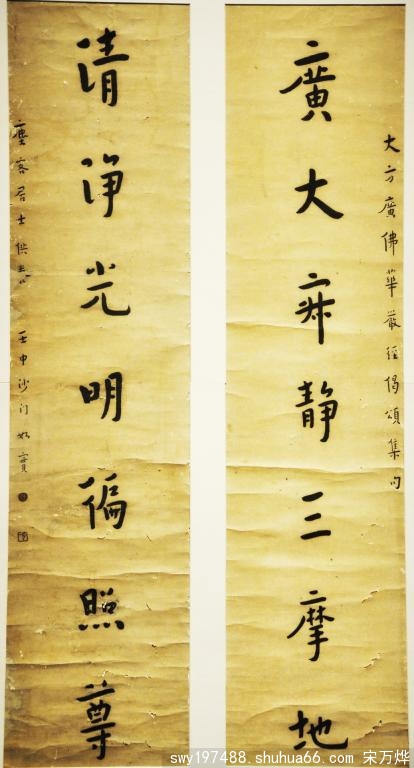 大方廣佛華嚴經偈頌集句
廣大寂静三摩地
清净光明徧照尊
塵客居士供養 壬申沙门
swy197488.shuhua66.com 宋万烨